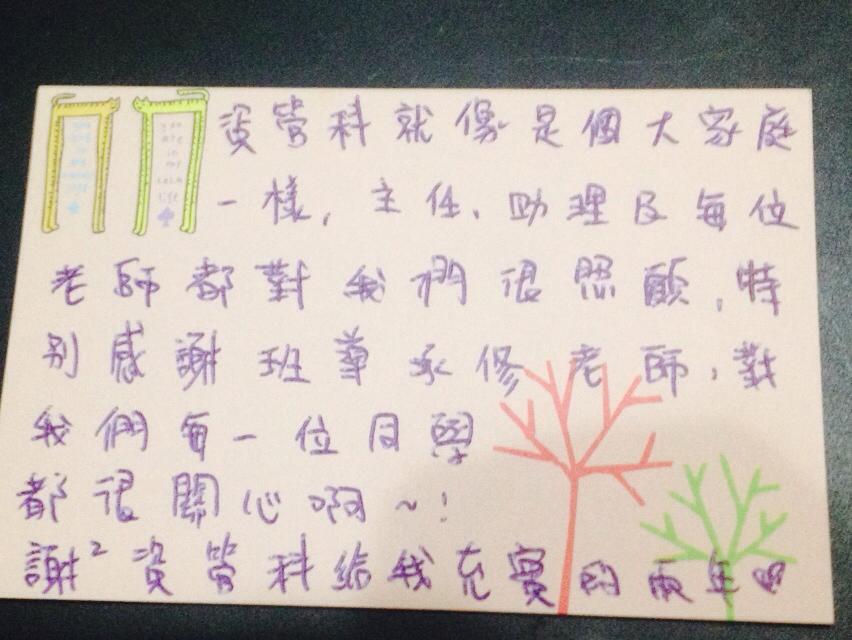 資管科就像是個大家庭
一樣，主任、助理及每位
老師都對我們很照顧，特
別感謝班導承修老師，對
我們每一位同學
都很關心啊～！
謝² 資管科給我充實的兩年♥
you
are
in
my
life